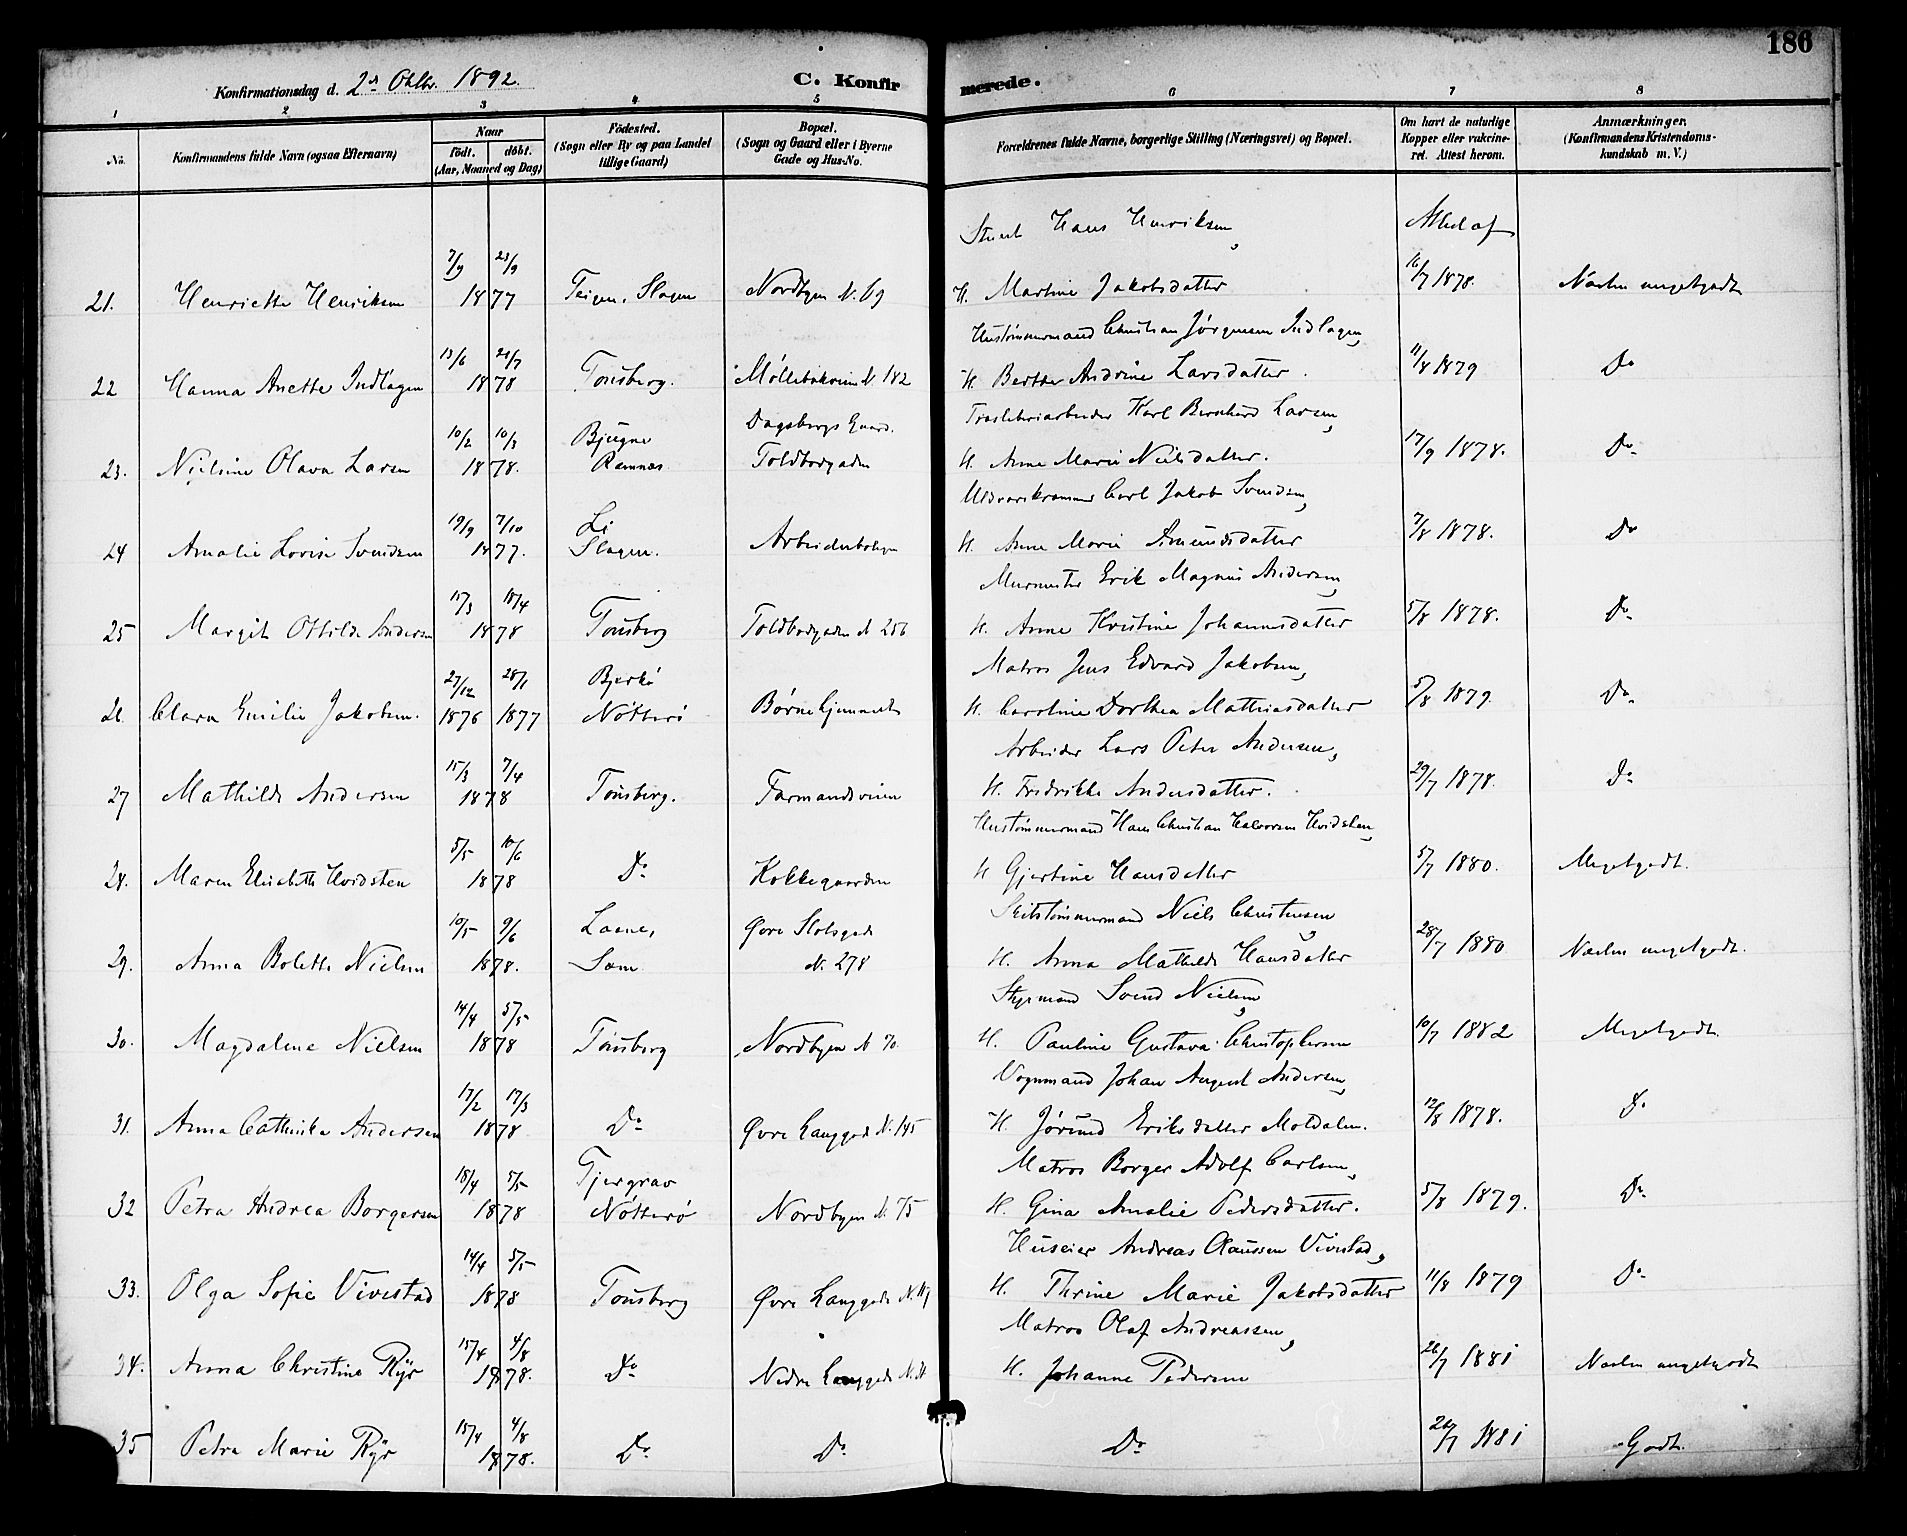 186
Konfirmationsdag d. 2den Oktbr. 1892.
C. Konfirmerede.
1 2 3 4 5 6 7 8
No.
Konfirmandens fulde Navn (ogsaa Efternavn)
Naar
födt. döbt.
(Aar, Maaned og Dag)
Födested.
(Sogn eller By og paa Landet
tillige Gaard)
Bopæl.
(Sogn og Gaard eller i Byerne
Gade og Hus-No.
Forældrenes fulde Navne, borgerlige Stilling (Næringsvei) og Bopæl.
Om havt de naturlige
Kopper eller vakcine-
ret. Attest herom.
Anmærkninger.
(Konfirmandens Kristendoms-
kundskab m. V.)
Hans Henriksen, Attest af
21. Henriette Henriksen 7/9 23/9 1877 Teigen, Slagen Nordbyen N. 69 H. Martine Jakobsdatter 16/7 1878. Næsten megetgodt
Hustømmermand Christian Jørgensen Indlagen,
22 Hanna Anette Indlagen 13/6 21/7 1878 Tønsberg. Møllebakveien N 182 H. Berthe Andrine Larsdatter. 11/8 1879 Do
Karl Bernhard Larsen,
23. Nielsine Olava Larsen 10/2 10/3 1878. Bjugne Ramnæs Dagsbergs Gaard. Toldbodgaden H. Anne Marie Nielsdatter. 17/9 1878. Do
Carl Jakob Svendsen,
24 Amalie Lovise Svendsen 19/9 7/10 1877. Li Slagen. Arbeiderboligen H. Anne Marie Amundsdatter 7/8 1878. Do
Murmester Erik Magnus Andersen,
25 Margit Ottilde Andersen 15/3 18/4 1878 Tønsberg Toldbodgaden N 256 H. Anne Kristine Johannesdatter 5/8 1878. Do
Matros Jens Edvard Jakobsen,
26. Clara Emilie Jakobsen. 27/12 1876 28/1 1877 Bjerkø Nøtterø Børnehjemmet H. Caroline Dorthea Mathiasdatter 5/8 1879. Do
Arbeider Lars Peter Andersen,
27 Mathilde Andersen 15/3 7/4 1878 Tønsberg. Farmandsveien H. Fredrikke Andersdatter. 29/7 1878. Do
Hustømmermand Hans Christian Halvorsen Hvidsten,
28. Maren Elisabeth Hvidsten 5/5 10/6 1878 Do Kokkegaarden H Gjertine Hansdatter 5/7 1880. Megetgodt.
Skibstømmermand Niels Christensen,
29. Anna Bolette Nielsen 10/5 9/6 1878. Laane, Sem Øvre Slotsgade N. 278 H. Anna Mathilde Hansdatter 28/7 1880 Næsten megetgodt.
Styrmand Svend Nielsen,
30. Magdalene Nielsen 14/4 5/5 1878 Tønsberg Nordbyen N 70. H. Pauline Gustava Christophersen 10/7 1882 Megetgodt.
Vognmand Johan August Andersen,
31. Anna Cathinka Andersen 17/2 17/3 1878 Do Øvre Langgade N. 145 H. Jørund Eriksdatter Moldalen. 12/8 1878. Do
Matros Borger Adolf Carlsen,
32 Petra Andrea Borgersen 18/4 5/5 1878 Tjergrav Nøtterø Nordbyen N. 75 H. Gina Amalie Pedersdatter. 5/8 1879. Do
Huseier Andreas Olaussen Vivestad,
33. Olga Sofie Vivestad 14/4 5/5 1878 Tønsberg Øvre Langgade H. Thrine Marie Jakobsdatter 11/8 1879 Do
Matros Olaf Andreassen,
34. Anna Christine Ryr 15/4 4/8 1878. Do Nedre Langgade H. Johanne Pedersen 26/7 1881 Næsten megetgodt
35 Petra Marie Ryr 15/4 4/8 1878. Do Do Do 26/7 1881 Godt.